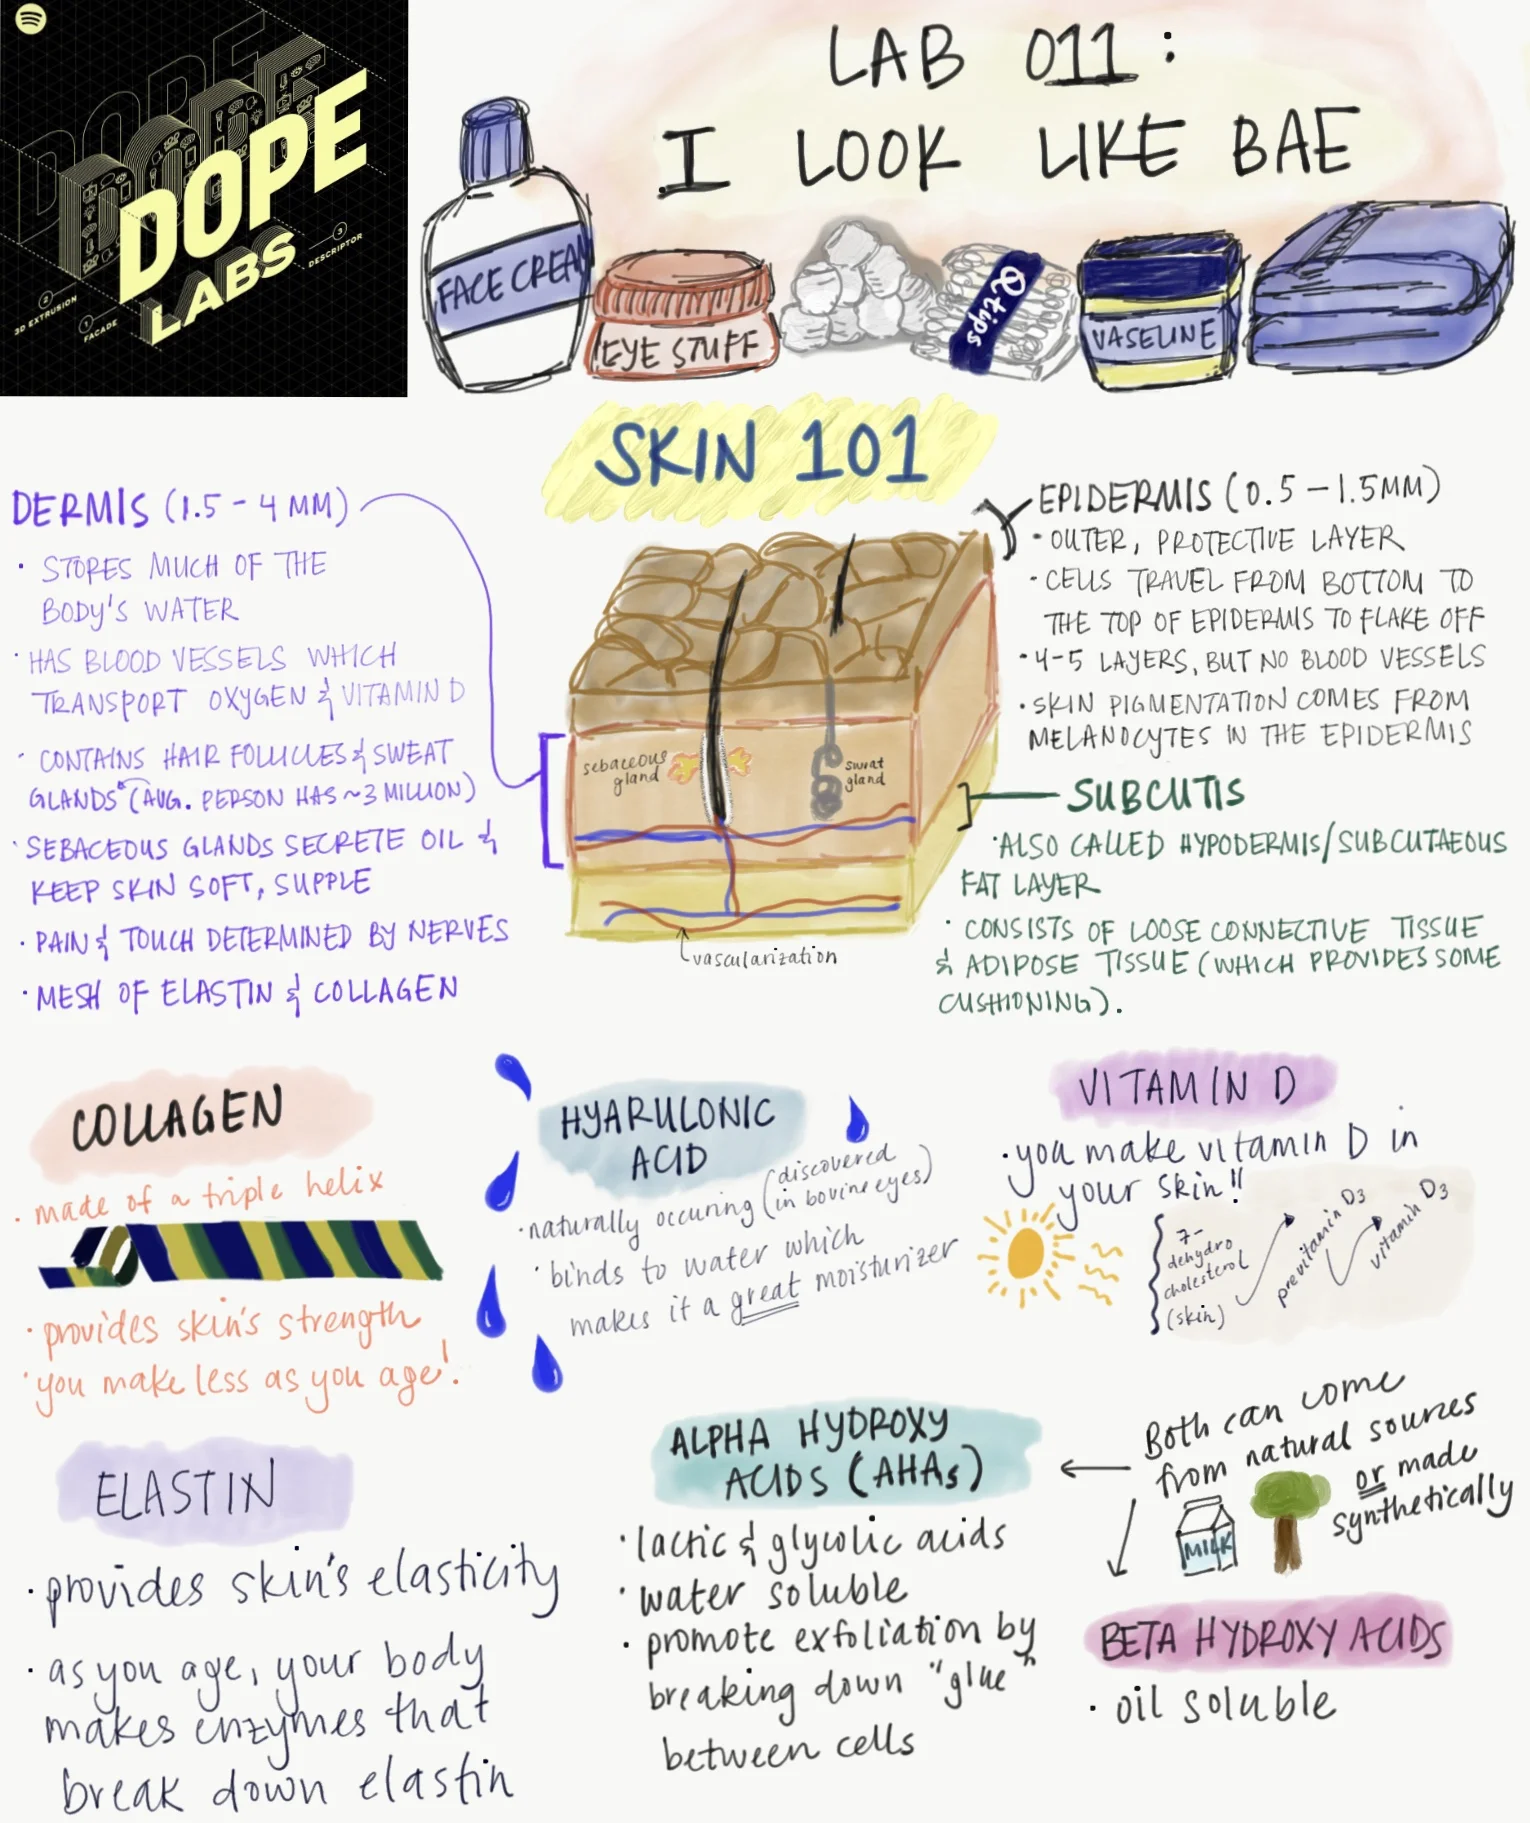 DOPE
LABS
DOPE
2
3D EXTRUSION
1
FACADE
3
DESCRIPTOR
LAB 011:
I LOOK LIKE BAE
FACE CREAM
EYE STUFF
Qtips
VASELINE
SKIN 101
DERMIS (1.5 - 4 MM)
· STORES MUCH OF THE
BODY'S WATER
· HAS BLOOD VESSELS WHICH
TRANSPORT OXYGEN & VITAMIN D
· CONTAINS HAIR FOLLICLES & SWEAT
GLANDS (AVG. PERSON HAS ~3 MILLION)
· SEBACEOUS GLANDS SECRETE OIL &
KEEP SKIN SOFT, SUPPLE
· PAIN & TOUCH DETERMINED BY NERVES
· MESH OF ELASTIN & COLLAGEN
sebaceous
gland
sweat
gland
vascularization
EPIDERMIS (0.5 - 1.5MM)
· OUTER, PROTECTIVE LAYER
· CELLS TRAVEL FROM BOTTOM TO
THE TOP OF EPIDERMIS TO FLAKE OFF
· 4-5 LAYERS, BUT NO BLOOD VESSELS
· SKIN PIGMENTATION COMES FROM
MELANOCYTES IN THE EPIDERMIS
SUBCUTIS
· ALSO CALLED HYPODERMIS/SUBCUTAEOUS
FAT LAYER
· CONSISTS OF LOOSE CONNECTIVE TISSUE
& ADIPOSE TISSUE (WHICH PROVIDES SOME
CUSHIONING).
COLLAGEN
· made of a triple helix
· provides skin's strength
· you make less as you age!
HYARULONIC
ACID
· naturally occuring (discovered
in bovine eyes)
· binds to water which
makes it a great moisturizer
VITAMIN D
· you make vitamin D in
your skin!!
7-
dehydro
cholesterol
(skin)
previtamin D3
vitamin D3
ELASTIN
· provides skin's elasticity
· as you age, your body
makes enzymes that
break down elastin
ALPHA HYDROXY
ACIDS (AHAs)
· lactic & glycolic acids
· water soluble
· promote exfoliation by
breaking down "glue"
between cells
Both can come
from natural sources
or made
synthetically
MILK
BETA HYDROXY ACIDS
· oil soluble